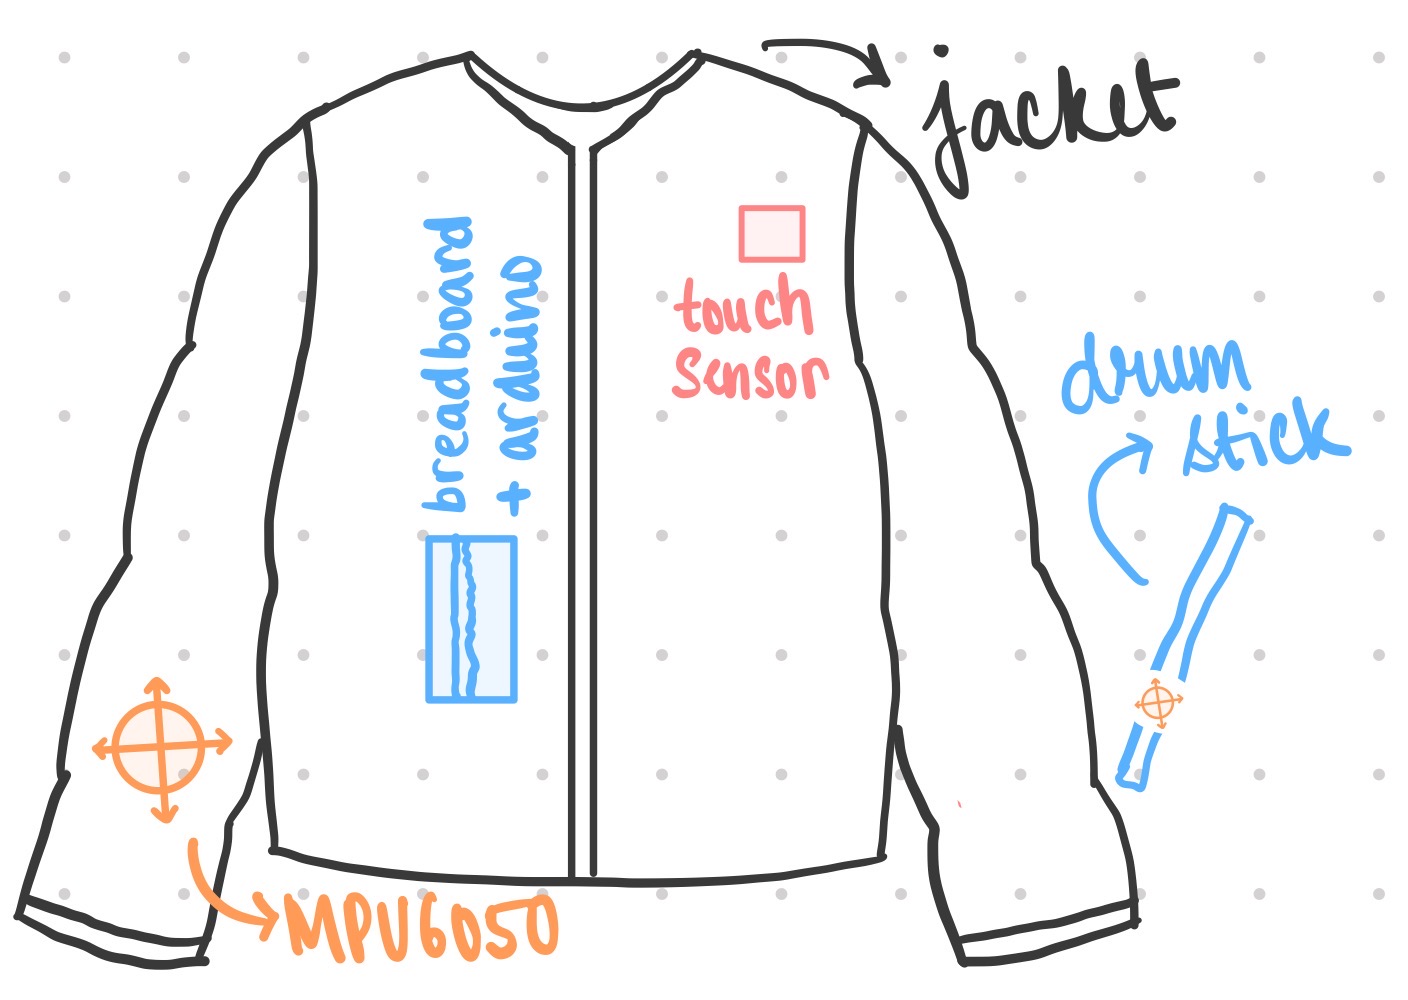 jacket
breadboard
+ arduino
touch
sensor
drum
stick
MPU6050